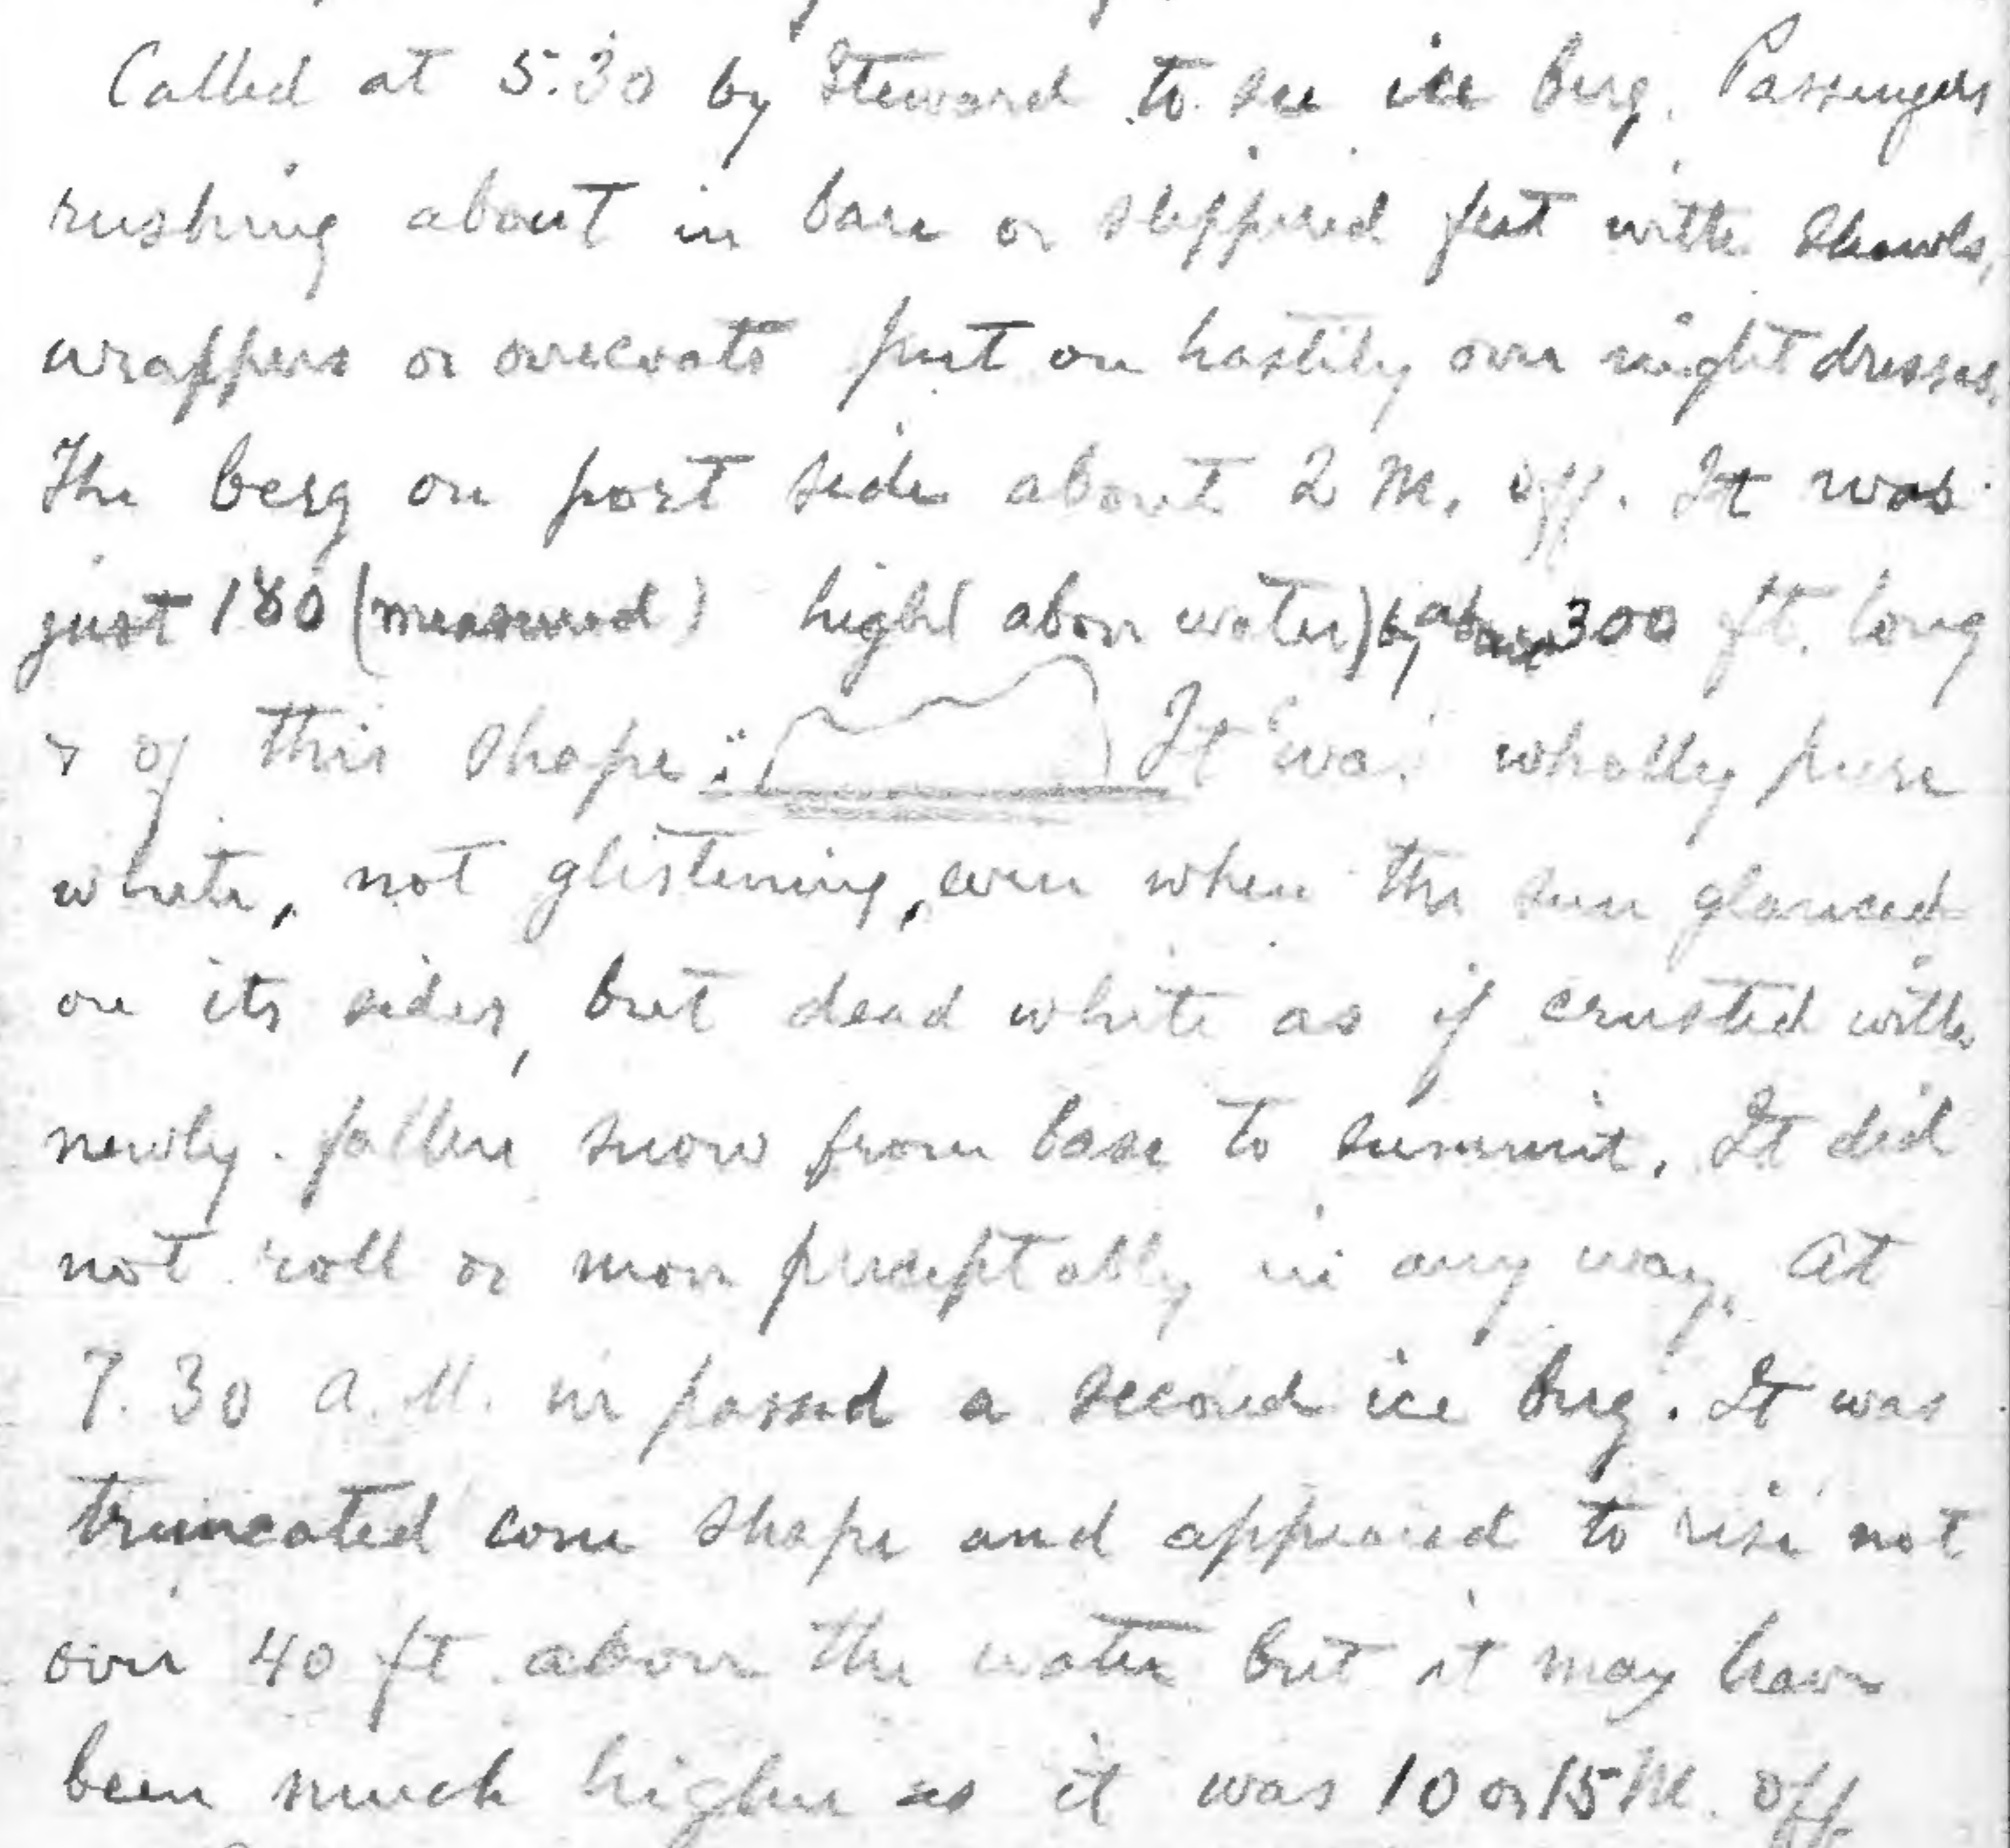 Called at 5.30 by Steward to see ice berg. Passengers
rushing about in bare or slippered feet with shawls,
wrappers or overcoats put on hastily over night dresses.
The berg on port side about 2 M. off. It was
just 180 (measured) high (above water) by about 300 ft. long
& of this shape: It was wholly pure
white, not glistening, even when the sun glanced
on its sides, but dead white as if crusted with
newly-fallen snow from base to summit. It did
not roll or move preceptably in any way. At
7.30 A.M. we passed a second ice berg. It was
truncated cone shape and appeared to rise not
over 40 ft. above the water but it may have
been much higher as it was 10 or 15 M. off